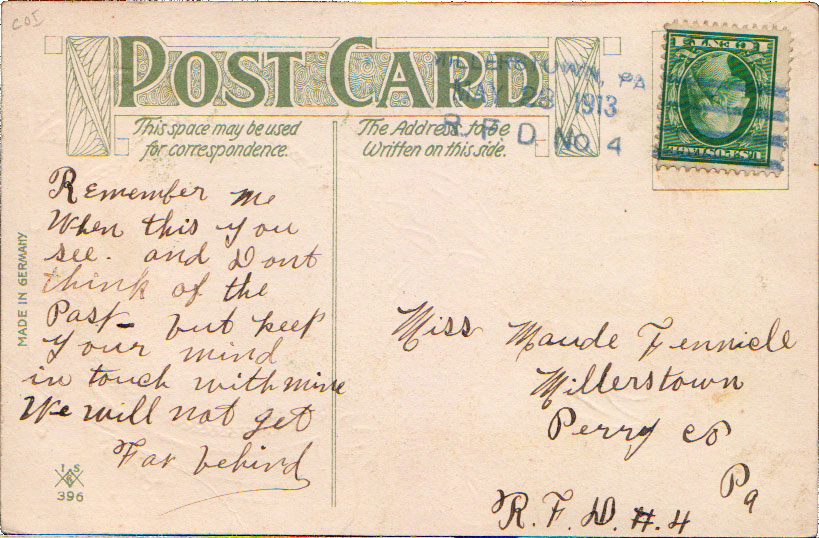 COI
POST CARD
This space may be used
for correspondence.
The Address to be
Written on this side.
MILLERSTOWN, PA
MAY 28 1913
R. F. D. No. 4
U.S. POSTAGE
Remember me
When this you
see. and Dont
think of the
Past_ but keep
Your mind
in touch with mine
We will not get
Far behind
MADE IN GERMANY
I S
396
Miss Maude Fennicle
Millerstown
Perry Co
Pa
R. F. D. #. 4